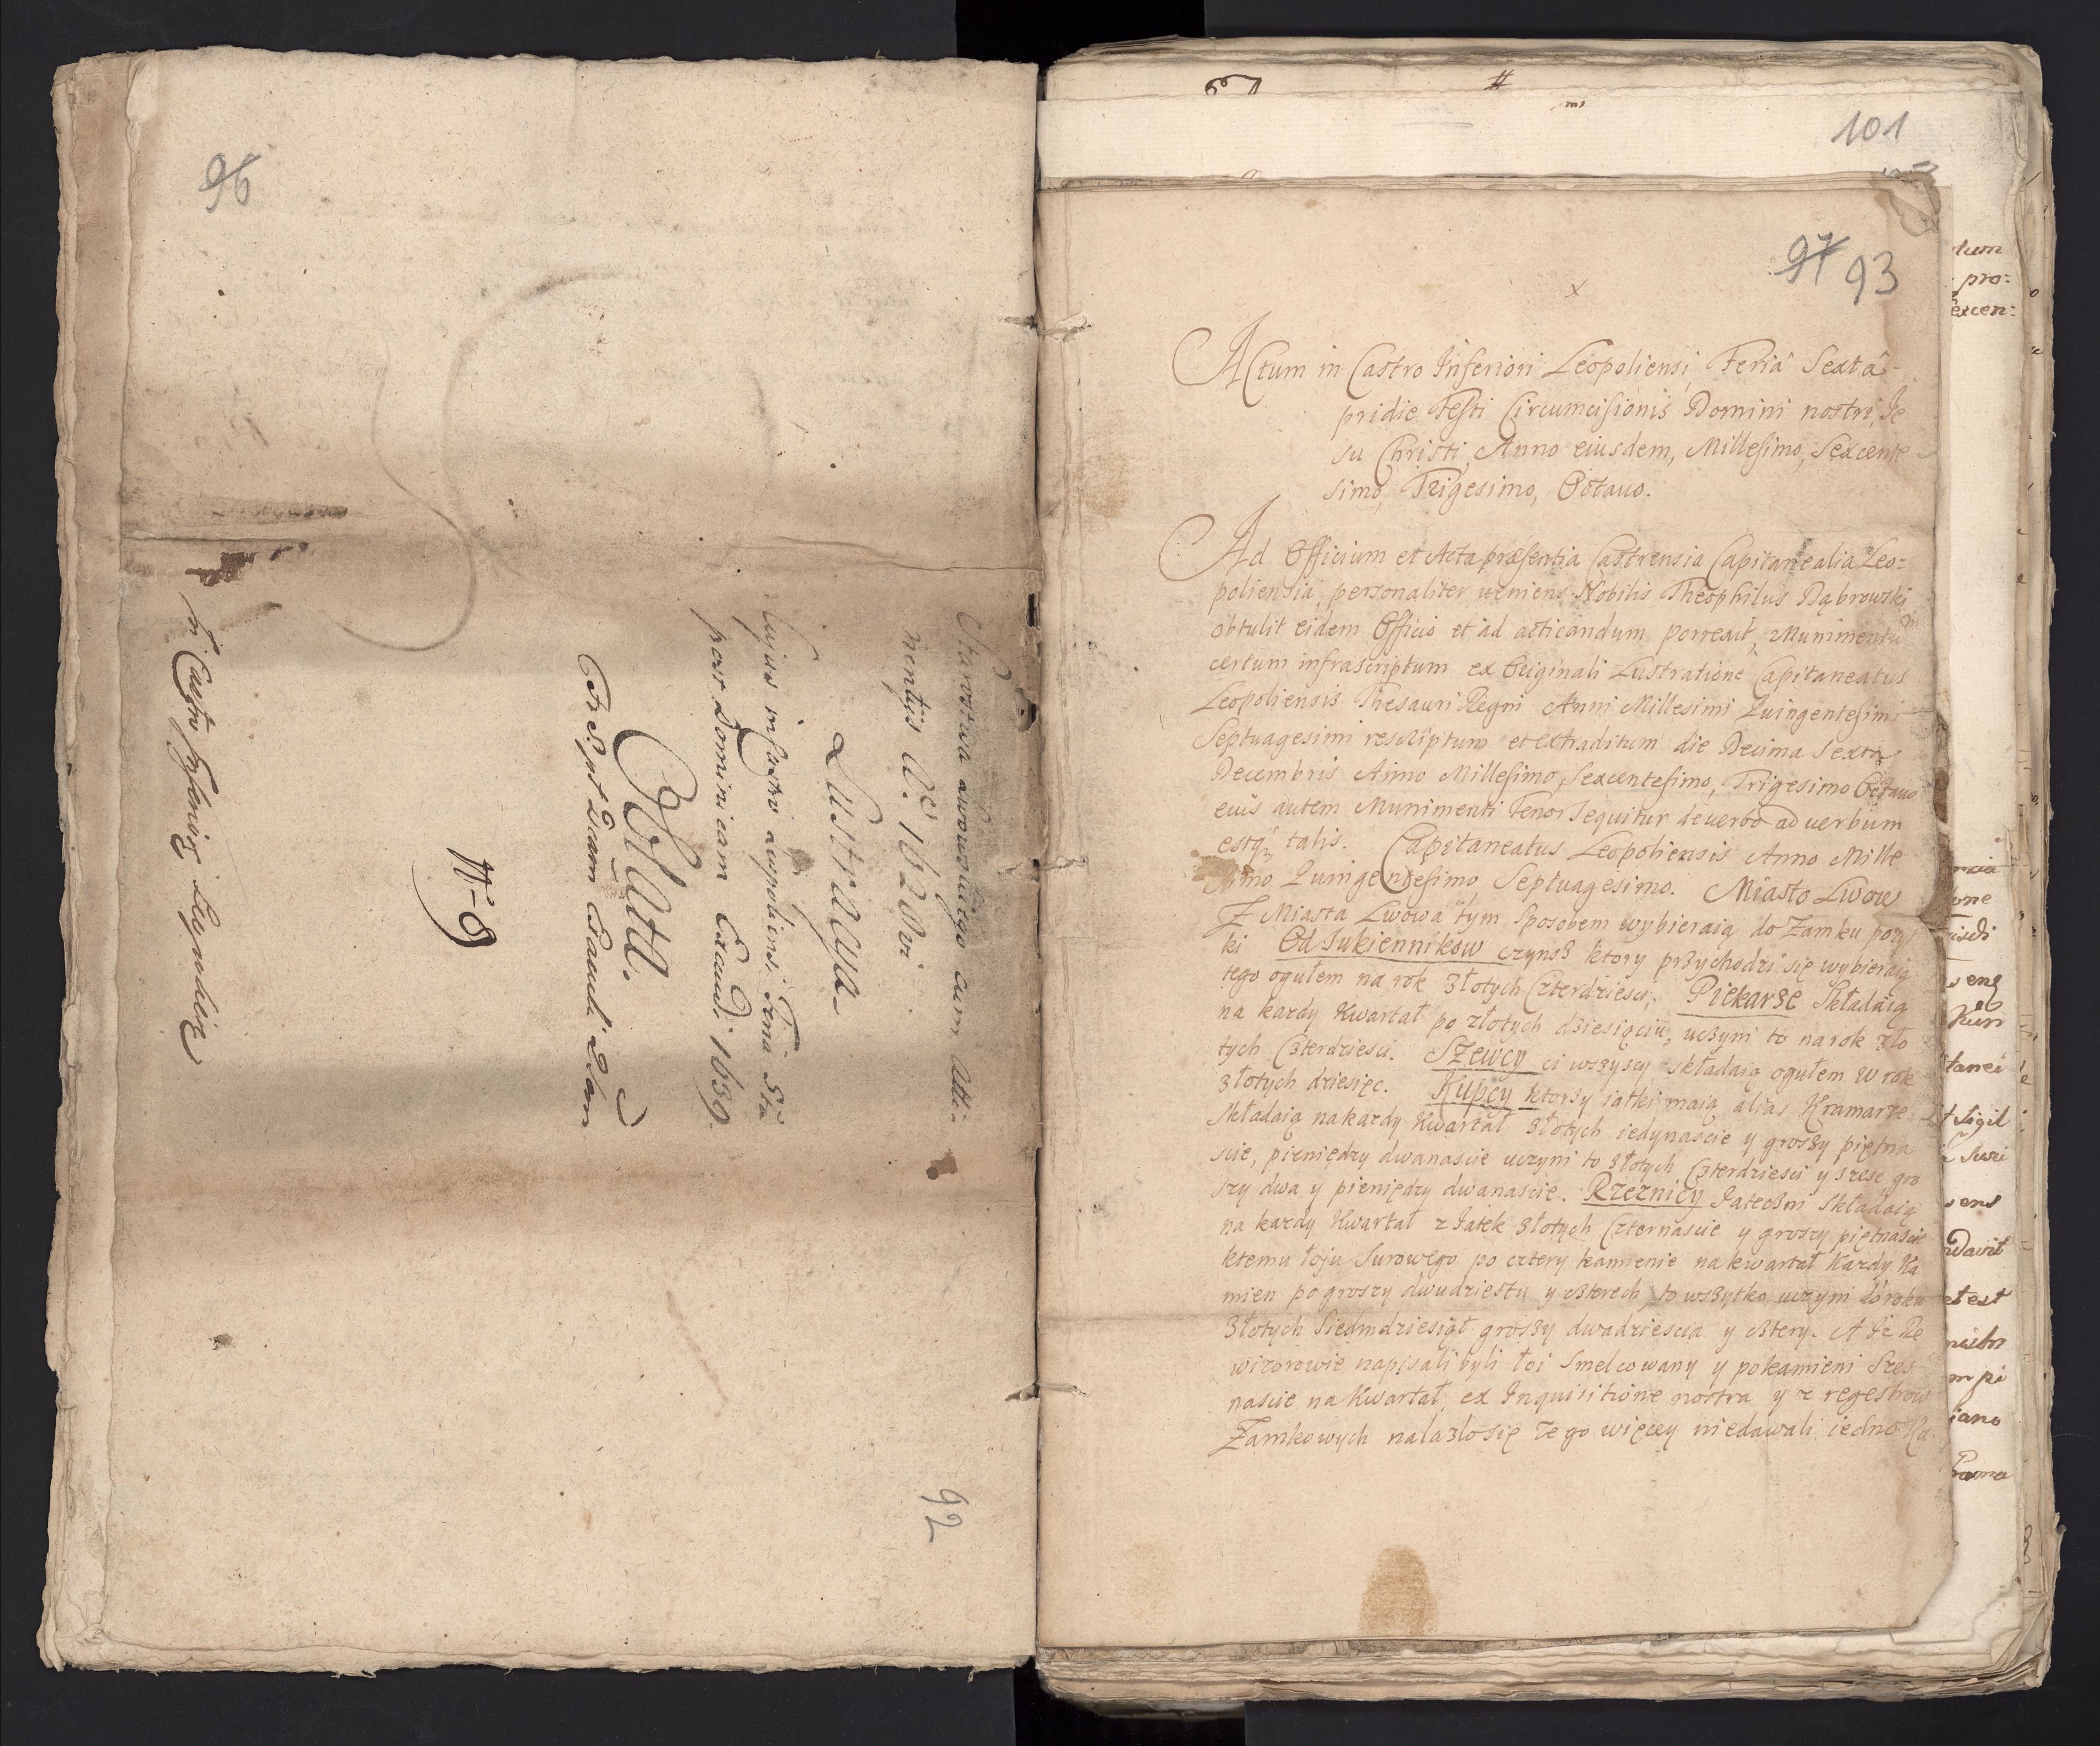 96
Starostwa Lwowskiego cum atti
nentijs Ao. 1620vi
Lustracya
Cujus in Castro Leopoliensi Feria 5ta
post Dominicam Exaudi 1639
Oblata.
N-9
In Castro Inferiori Leopoliens
92
101
97 93
Actum in Castro Inferiori Leopoliensi, Feriâ Sextâ
pridie Festi Circumcisionis Domini nostri, Je
su Christi, Anno eiusdem, Millesimo, Sexcente
simo, Trigesimo, Octauo.
Ad Officium et Acta præsentia Castrensia Capitanealia Leo=
poliensia, personaliter ueniens Nobilis Theophilus Dąbrowski
obtulit eidem Officio et ad acticandum porrexit, Munimentum
certum infrascriptum ex Originali Lustratione Capitaneatus
Leopoliensis Thesauri Regni Anni Millesimi Quingentesimi
Septuagesimi rescriptum et extraditum die Decima Sexta
Decembris Anno Millesimo, Sexcentesimo, Trigesimo Octauo
cuius autem Munimenti Tenor sequitur de uerbo ad uerbum
estq3 talis. Capitaneatus Leopoliensis Anno Mille
simo Quingentesimo Septuagesimo. Miasto Lwow
Z Miasta Lwowa tym sposobem wybieraią do Zamku pożyt
ki Od Sukiennikow czynsz ktory przychodzi się wybieraią
tego ogułem na rok złotych Czterdziesci. Piekarze Składaią
na kazdy Kwartał po złotych dziesiąciu, uczyni to na rok zło
tych Czterdziesci. Szewcy ci wszyscy składaią ogułem w rok
złotych dziesięc. Kupcy ktorzy iatki maią alias Kramarze
Składaią na kazdy Kwartał złotych iedynascie y groszy piętna
scie, pieniędzy dwanascie uczyni to złotych Czterdziesci y szesc gro
szy dwa y pieniędzy dwanascie. Rzeznicy Jateczni Składaią
na kazdy Kwartał z Jatek złotych Czternascie y groszy piętnascie
ktemu łoju Surowego po cztery kamienie na kwartał Kazdy Ka
mien po groszy dwudziestu y czterech, to wszytko uczyni do roku
złotych Siedmdziesiąt groszy dwadziescia y cztery. A Iz Re
wizorowie napisali byli łoi Smelcowany y po kamieni Szes
nascie na Kwartał, ex Inquisitione nostra y z regestrow
Zamkowych nalazło się ze go więcey niedawali iedno Ka
tum
pro:
excen: